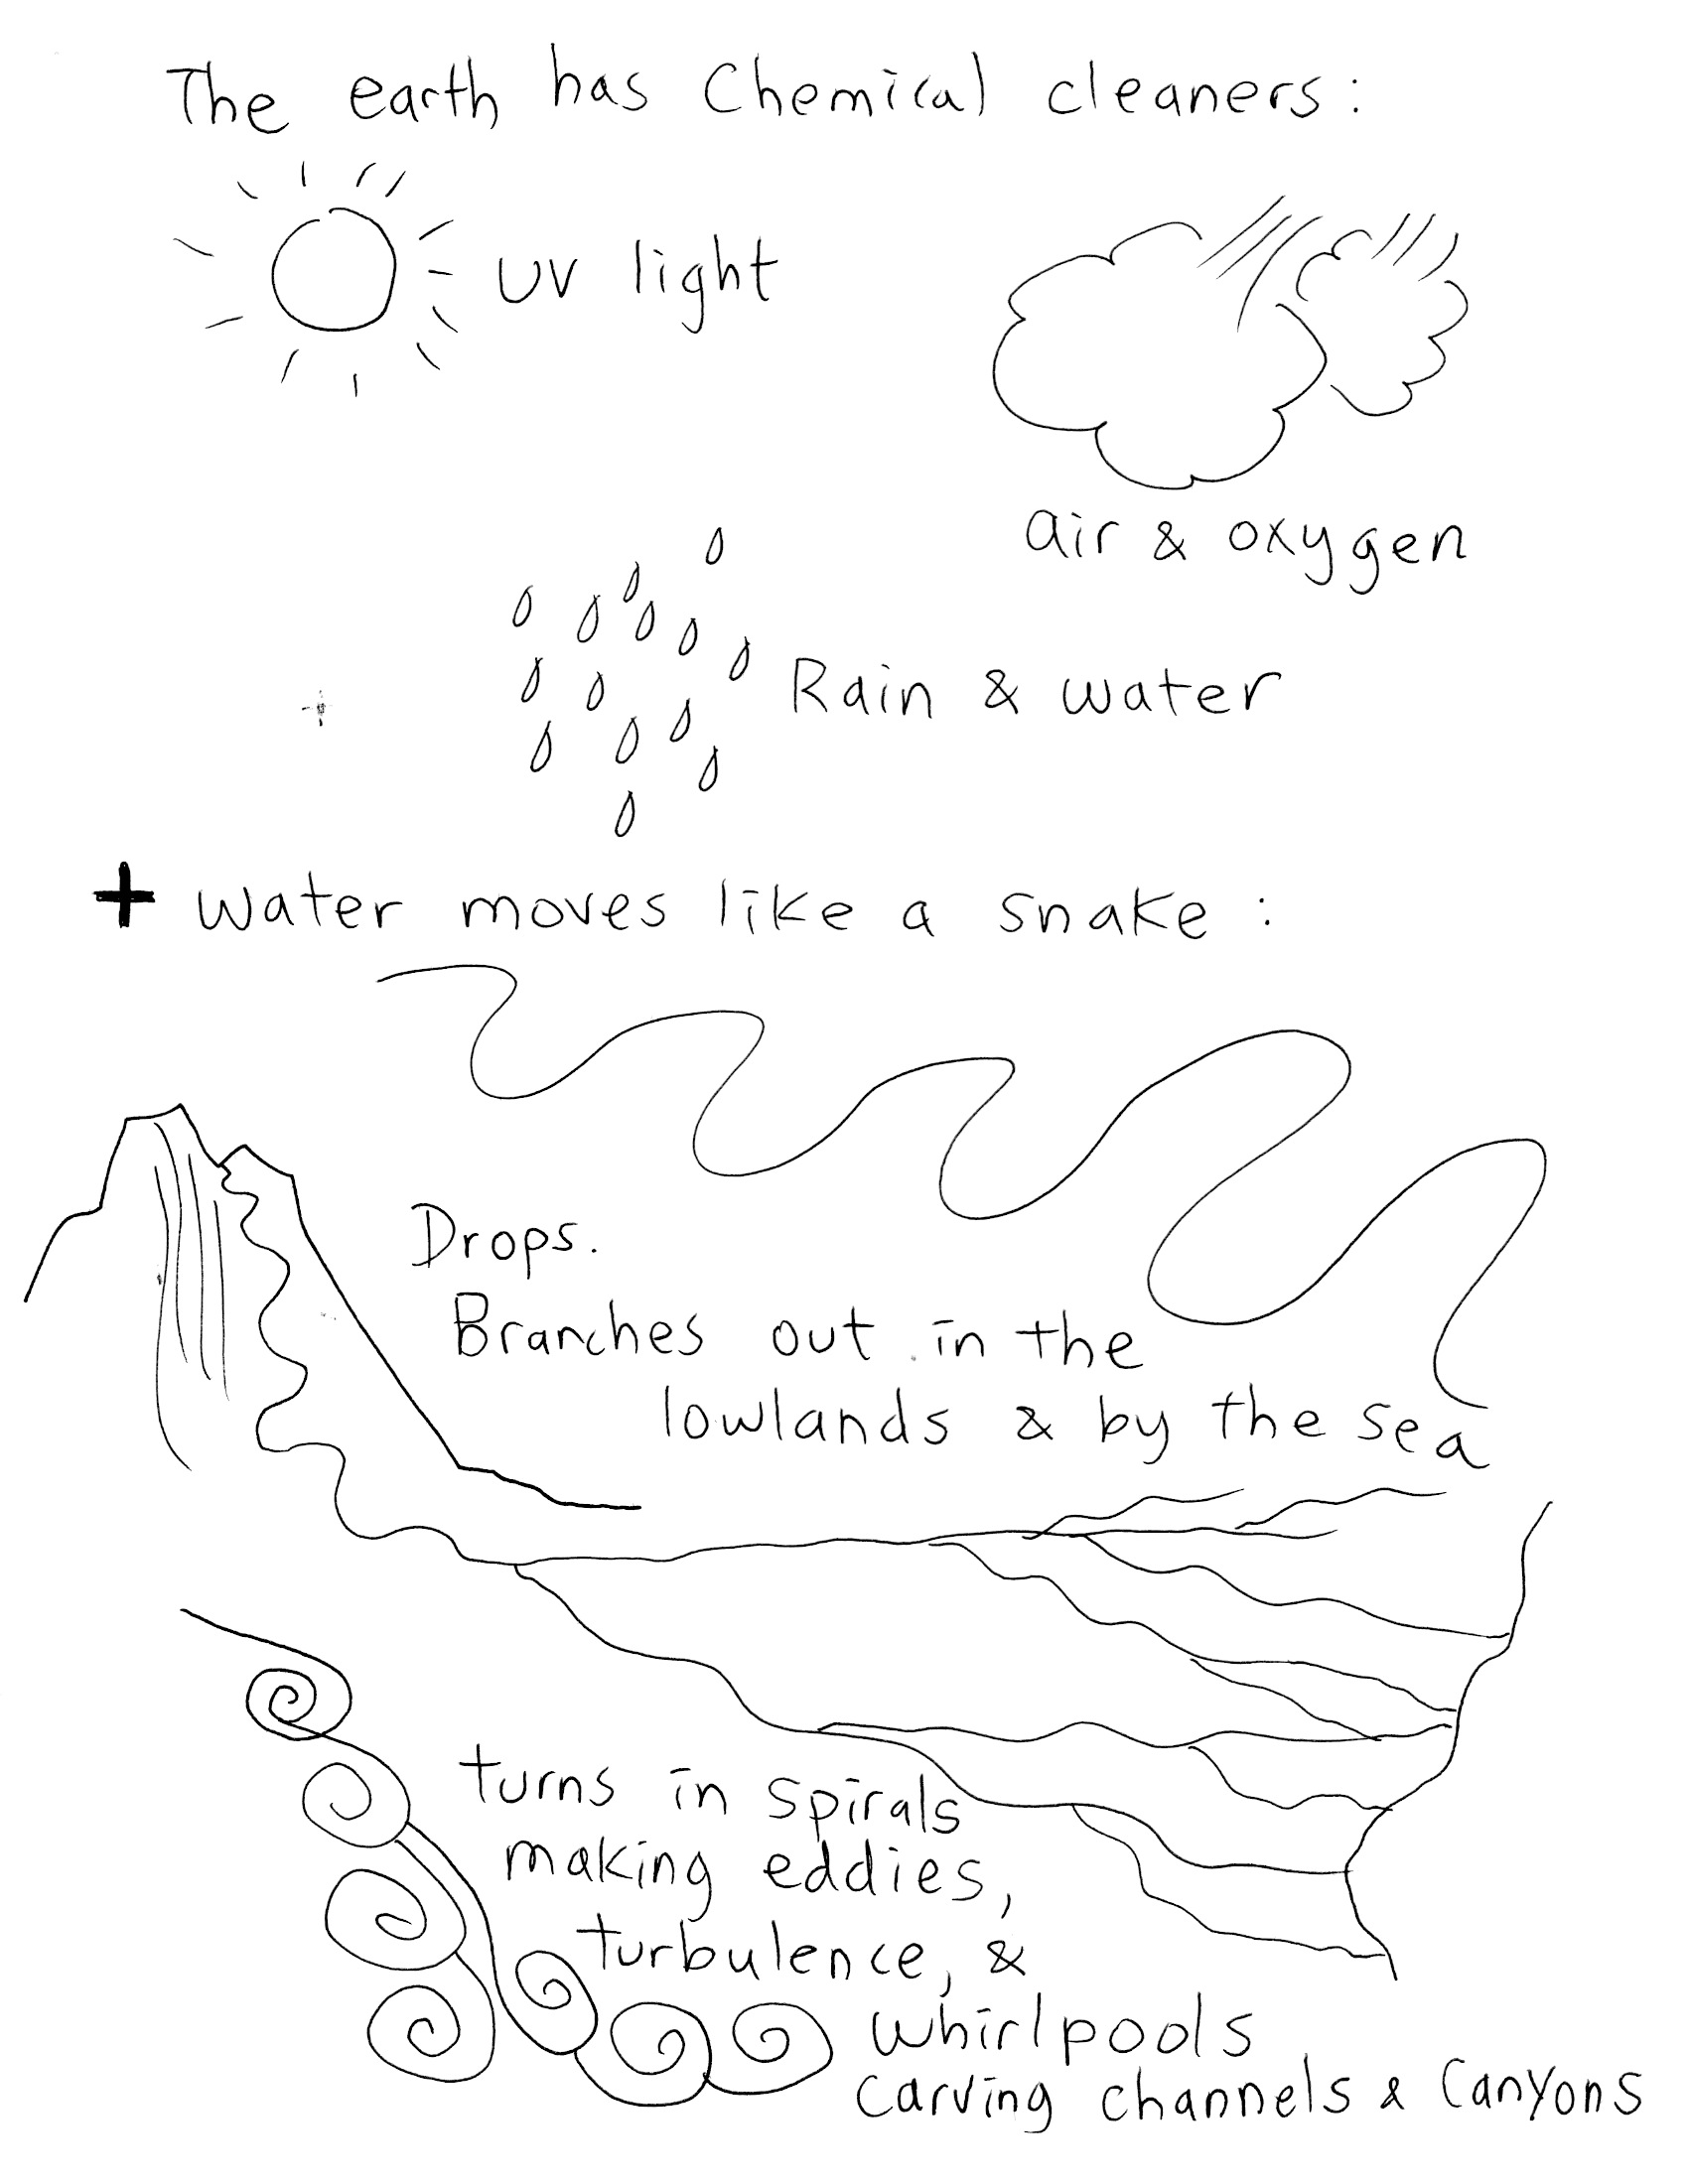 The earth has Chemical cleaners:
UV light
air & oxygen
Rain & water
+ Water moves like a snake:
Drops.
Branches out in the
lowlands & by the sea
turns in spirals
making eddies,
turbulence, &
whirlpools
carving channels & Canyons